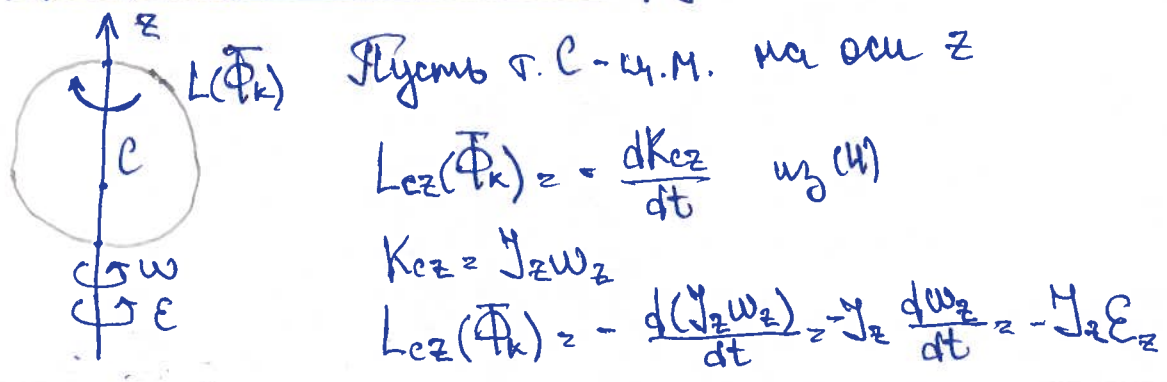 z
L(Φ̄ₖ)
C
ω
ε
Пусть т. C - ц.м. на оси z
L_cz(Φ̄ₖ) = - dK_cz/dt из (4)
K_cz = J_z ω_z
L_cz(Φ̄ₖ) = - d(J_z ω_z)/dt = -J_z dω_z/dt = -J_z ε_z